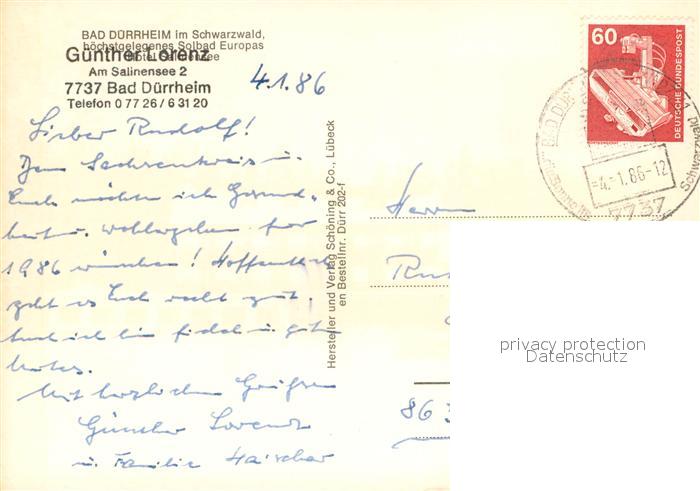 BAD DÜRRHEIM im Schwarzwald,
höchstgelegenes Solbad Europas
Hotel Salinensee
Günther Lorenz
Am Salinensee 2
7737 Bad Dürrheim
Telefon 0 77 26 / 6 31 20
4.1.86
Lieber Rudolf!
Dem u.
Euch möchte ich Gesund-
heit u. Wohlergehen für
1986 wünschen! Hoffentlich
geht es Euch recht gut.
Auch ich bin fidel u. guten
Mutes.
Mit herzlichen Grüßen
Günther Lorenz
u. Familie Haischer
Hersteller und Verlag Schöning & Co., Lübeck
en Bestellnr. Dürr 202-f
60
DEUTSCHE BUNDESPOST
BAD DÜR
-4.-1.86-12
7737
Schwarzwa
Herrn
Ru
86 3
privacy protection
Datenschutz